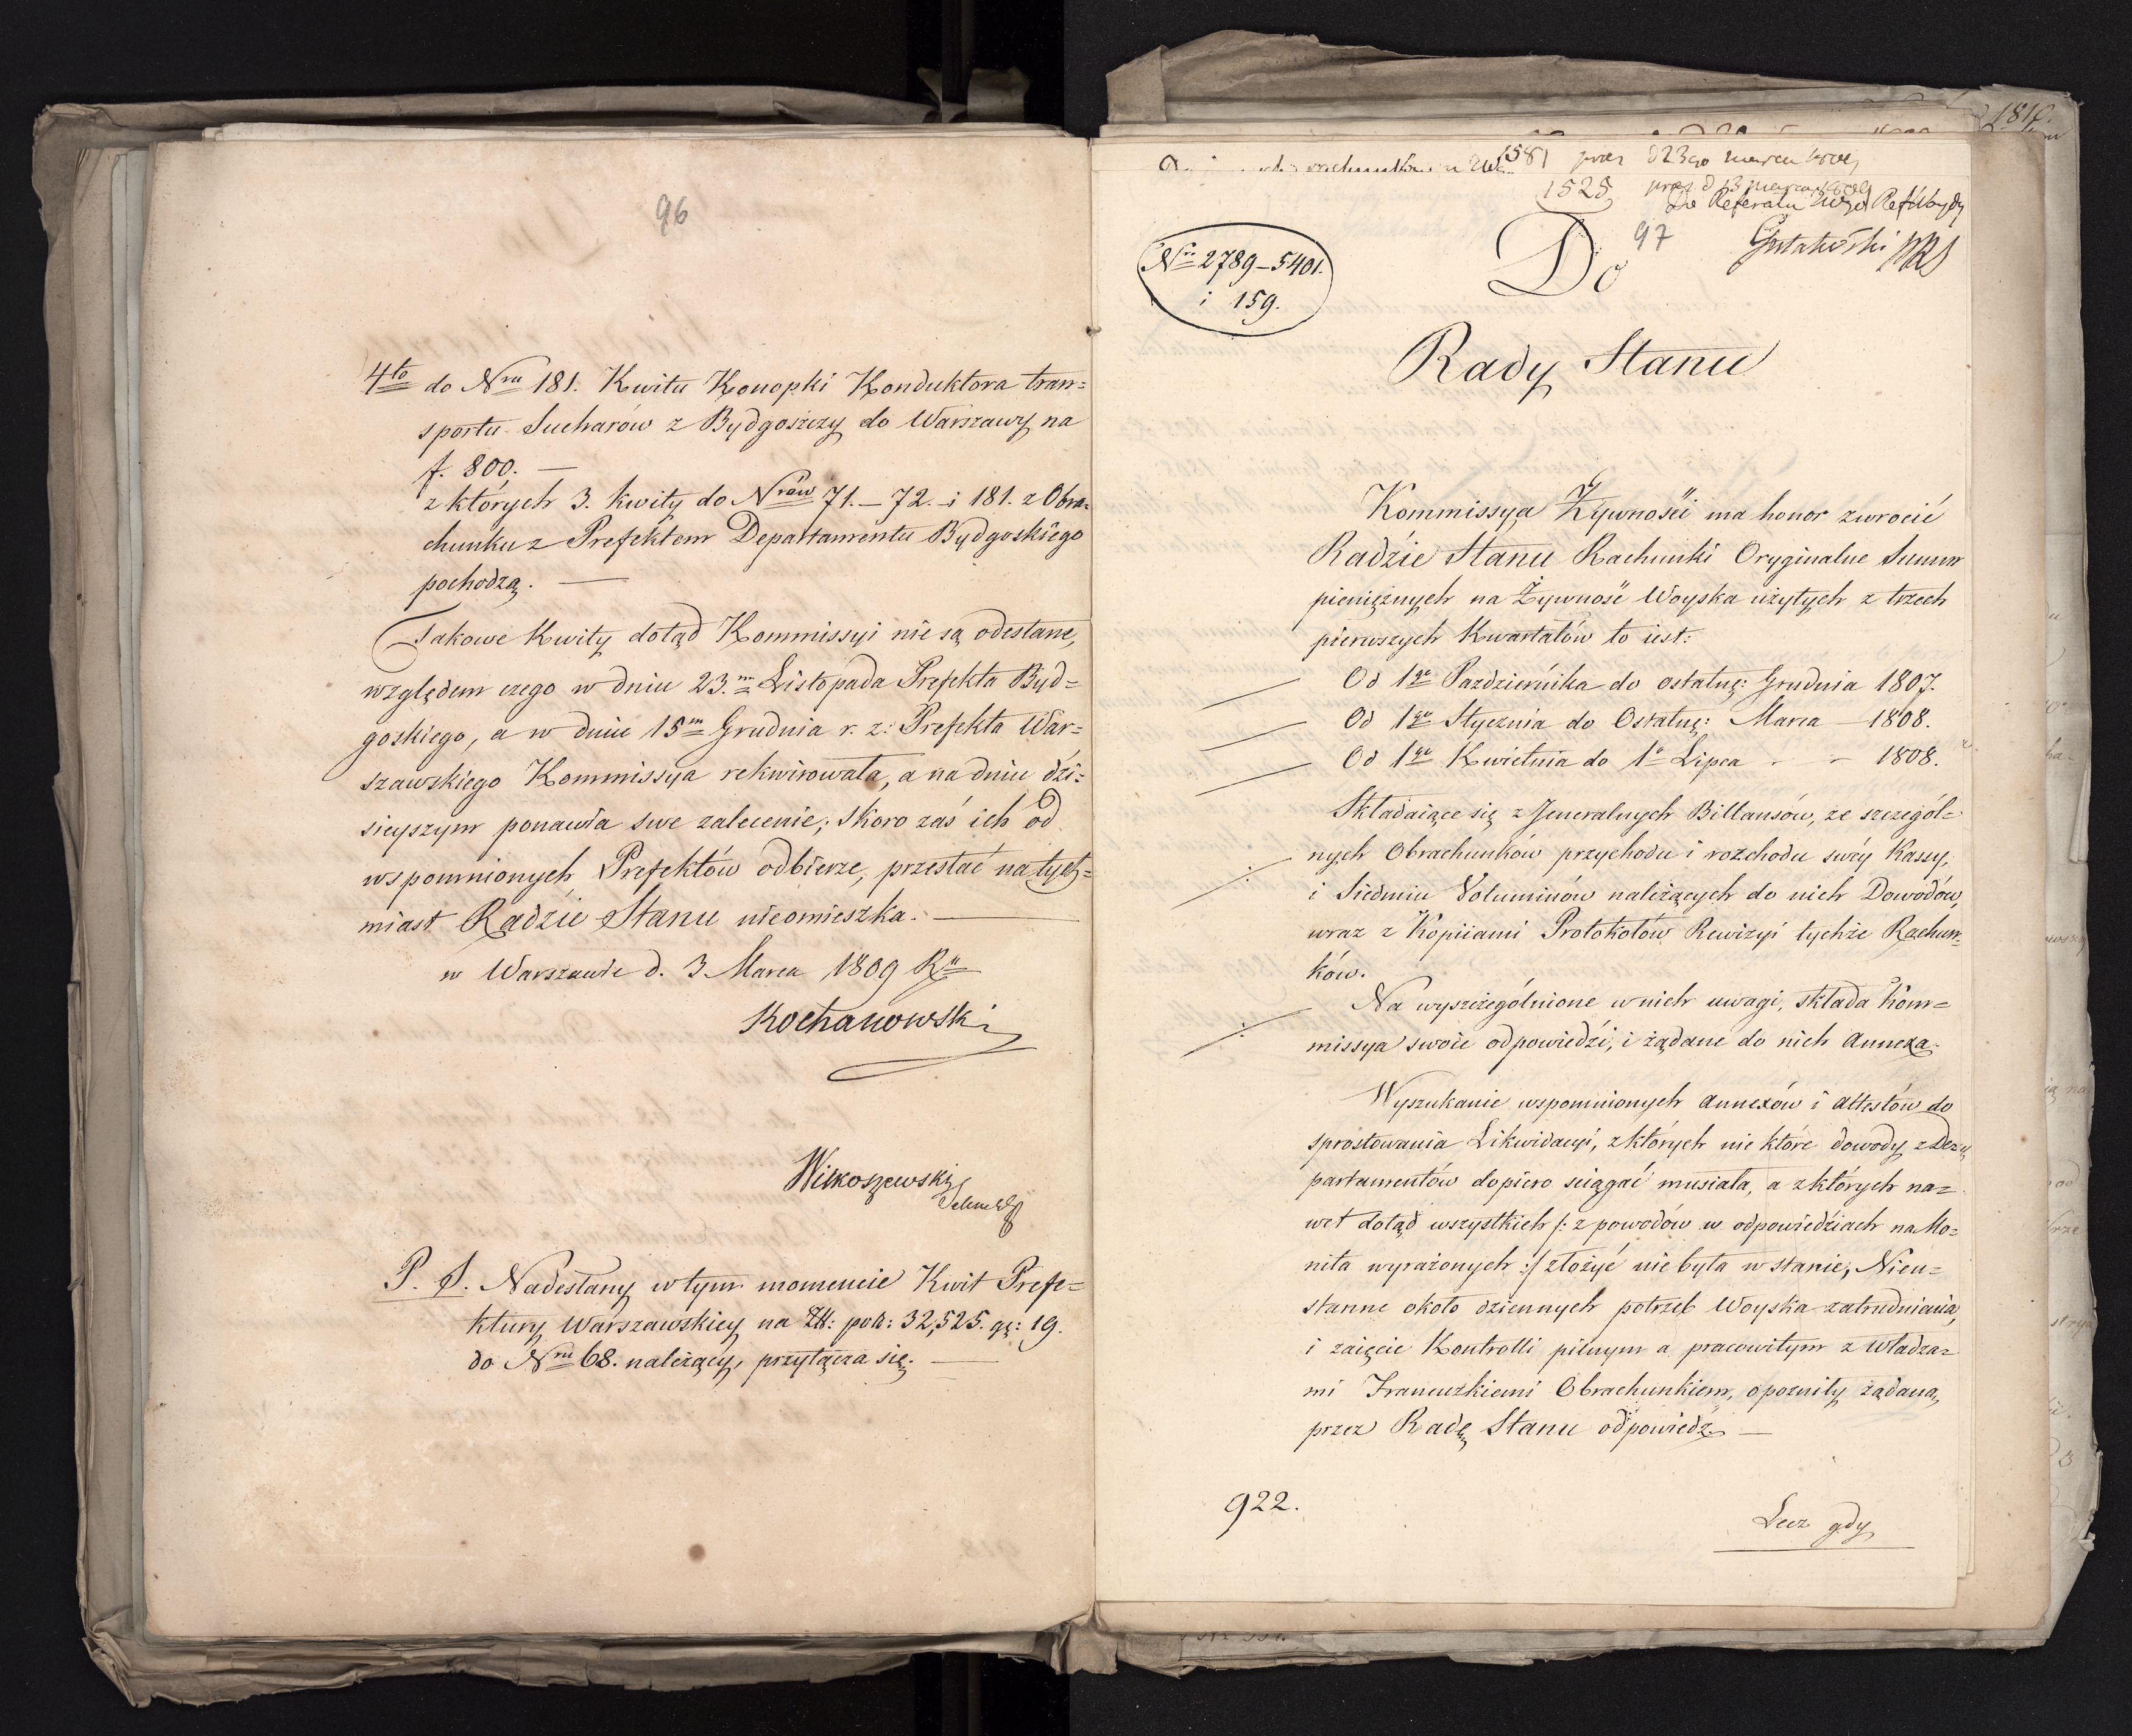 96
4to do Nru 181. Kwitu Konopki Konduktora tran=
sportu Sucharów z Bydgoszczy do Warszawy na
f. 800. —
z których 3. kwity do Nrów 71. — 72. i 181. z Obra=
chunku z Prefektem Departamentu Bydgoskiego
pochodzą. —
Takowe Kwity dotąd Kommissyi nie są odesłane,
względem czego w dniu 23.m Listopada Prefekta Byd=
goskiego, a w dniu 15m Grudnia r. z: Prefekta War=
szawskiego Kommissya rekwirowała, a na dniu dzi=
sieyszym ponawia swe zalecenie; skoro zaś ich od
wspomnionych Prefektów odbierze, przesłać natych=
miast Radzie Stanu nieomieszka. —
w Warszawie d. 3 Marca 1809 Ru
Kochanowski
Wilkoszewski
P. S. Nadesłany w tym momencie Kwit Prefe=
ktury Warszawskiey na Zł: pol: 32,525. gr: 19.
do Nru 68. należący, przyłącza się. —
1816.
1581 prez d 23go marca 1809
1525 prez d 13 marca 1809
Do Referatu Wgo Ref
97
Nro 2789 — 5401.
i 159.
Do
Rady Stanu
Kommissya Żywności ma honor zwrocić
Radzie Stanu Rachunki Oryginalne Summ
pieniężnych na Żywność Woyska użytych z trzech
pierwszych Kwartałów to iest:
Od 1go Pazdziernika do ostatn: Grudnia 1807.
Od 1go Stycznia do Ostatn: Marca — 1808.
Od 1go Kwietnia do 1o Lipca - - 1808.
Składaiące się z Jeneralnych Billansów, ze szczegól=
nych Obrachunków przychodu i rozchodu swéy Kassy,
i Siedmiu Voluminów należących do nich Dowodów,
wraz z Kopiiami Protokołów Rewizyi tychże Rachun=
ków.
Na wyszczególnione w nich uwagi, składa Kom=
missya swoie odpowiedzi, i żądane do nich Annexa.
Wyszukanie wspomnionych Annexów i Attestów do
sprostowania Likwidacyi, z których nie które dowody z De=
partamentów dopiero sciągać musiała, a z których na=
wet dotąd wszystkich /: z powodów w odpowiedziach na Mo=
nita wyrażonych :/ złożyć nie była w stanie; Nieu=
stanne około dziennych potrzeb Woyska zatrudniania,
i zaięcie Kontrolli pilnym a pracowitym z Władza=
mi Francuzkiemi Obrachunkiem, opoznily żądaną
przez Radę Stanu odpowiedz. —
922.
Lecz gdy